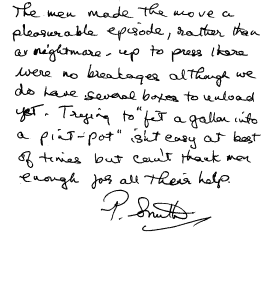 The men made the move a
pleasurable episode, rather than
a nightmare - up to press there
were no breakages although we
do have several boxes to unload
yet. Trying to "fit a gallon into
a pint-pot" isn't easy at best
of times but can't thank men
enough for all their help.
P. Smith